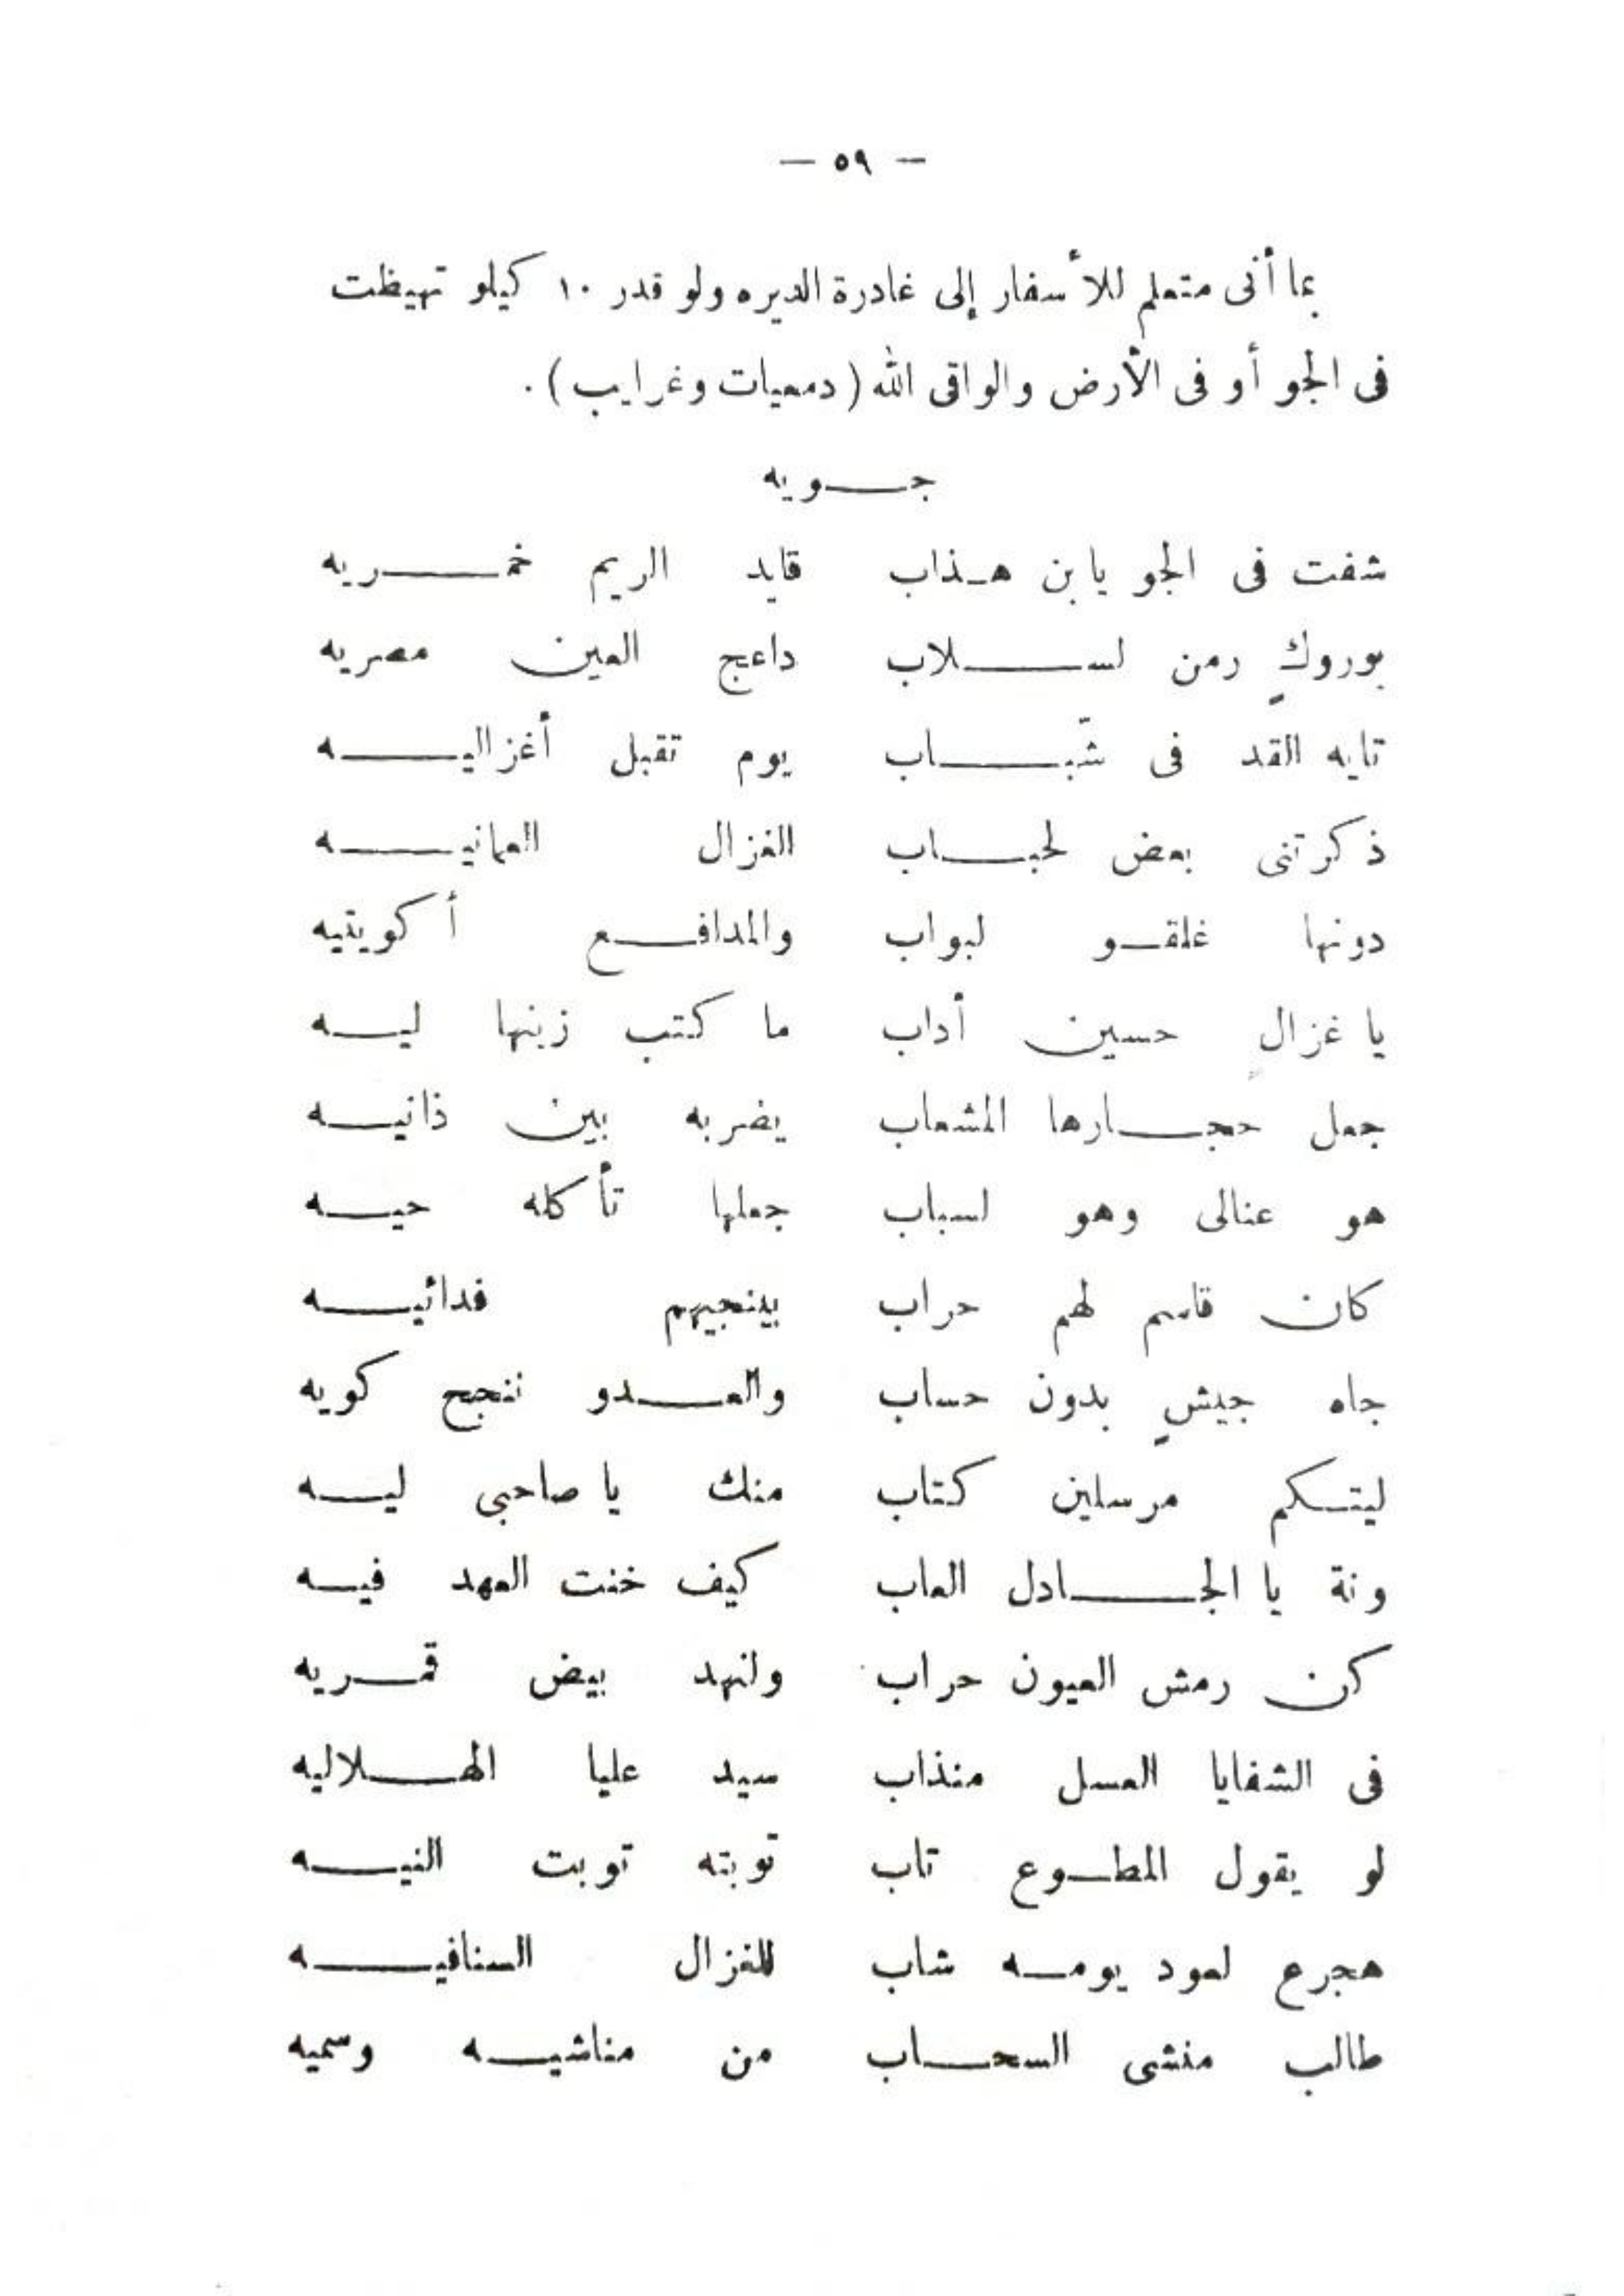 — ٥٩ —
بما أنى متعلم للأسفار إلى غادرة الديره ولو قدر ١٠ كيلو تهيظت
فى الجو أو فى الأرض والواقى الله ( دمعيات وغرايب ) .
جويه
شفت فى الجو يابن هذاب قايد الريم خمريه
بوروكٍ رمن لسلاب داعج العين مصريه
تايه القد فى شبّاب يوم تقبل أغزاليه
ذكرتنى بعض لحباب الغزال العمانيه
دونها غلقو لبواب والمدافع أكويتيه
يا غزال حسين أداب ما كتب زينها ليه
جعل حجارها المشعاب يضربه بين ذانيه
هو عنالى وهو لسباب جعلها تأكله حيه
كان قاسم لهم حراب يبنجيهم فدائيه
جاه جيشٍ بدون حساب والعدو ننجح كويه
ليتكم مرسلين كتاب منك يا صاحبى ليه
ونة يا الجادل العاب كيف خنت العهد فيه
كن رمش العيون حراب ولنهد بيض قمريه
فى الشفايا العسل منذاب سيد عليا الهلاليه
لو يقول المطوع تاب توبته توبت النيه
هجرع لعود يومه شاب للغزال السنافيه
طالب منشى السحاب من مناشيه وسميه